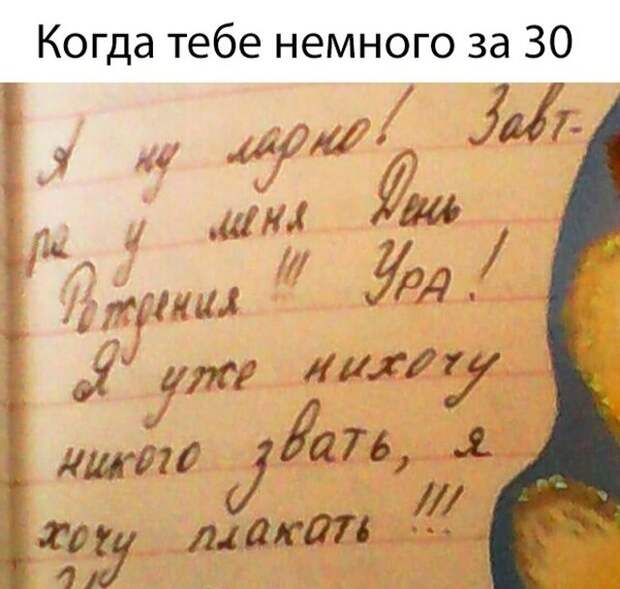 Когда тебе немного за 30
Я ну ладно! Завт-
ра у меня День
Рождения!!! Ура!
Я уже нихочу
никого звать, я
хочу плакать!!!